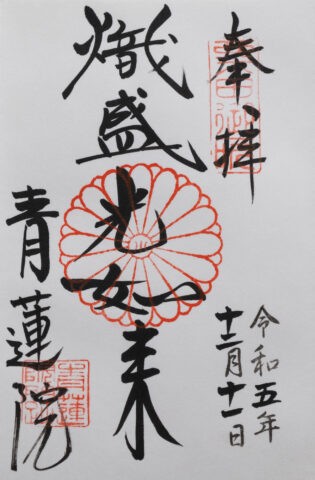 奉拝
熾盛光如来
青蓮院
令和五年
十二月十一日